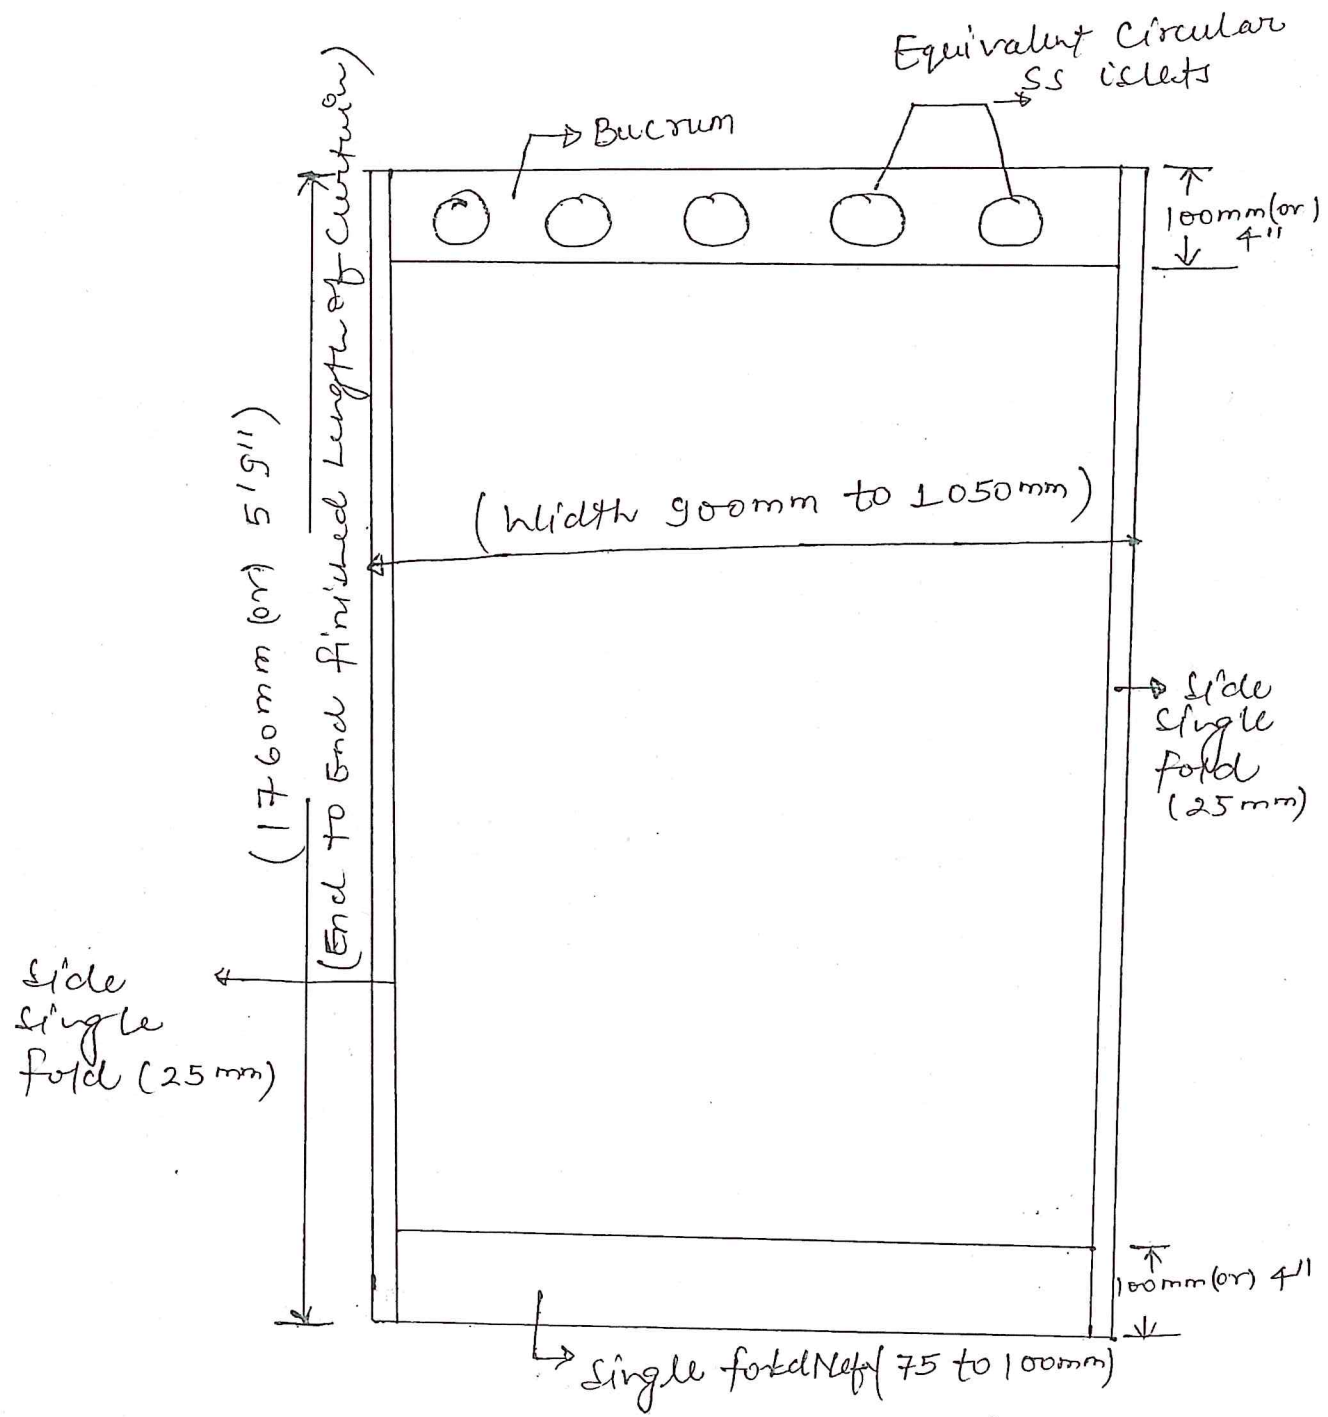 Equivalent Circular
SS islets
Bucrum
100mm(or)
4"
(1760mm (or) 5'9")
(End to End finished Length of Curtain)
(Width 900mm to 1050mm)
Side
Single
fold
(25mm)
Side
Single
fold (25mm)
100mm(or) 4"
Single fold (75 to 100mm)